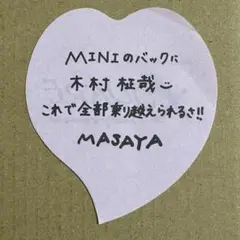 MINIのバックに
木村柾哉
これで全部乗り越えられるさ!!
MASAYA